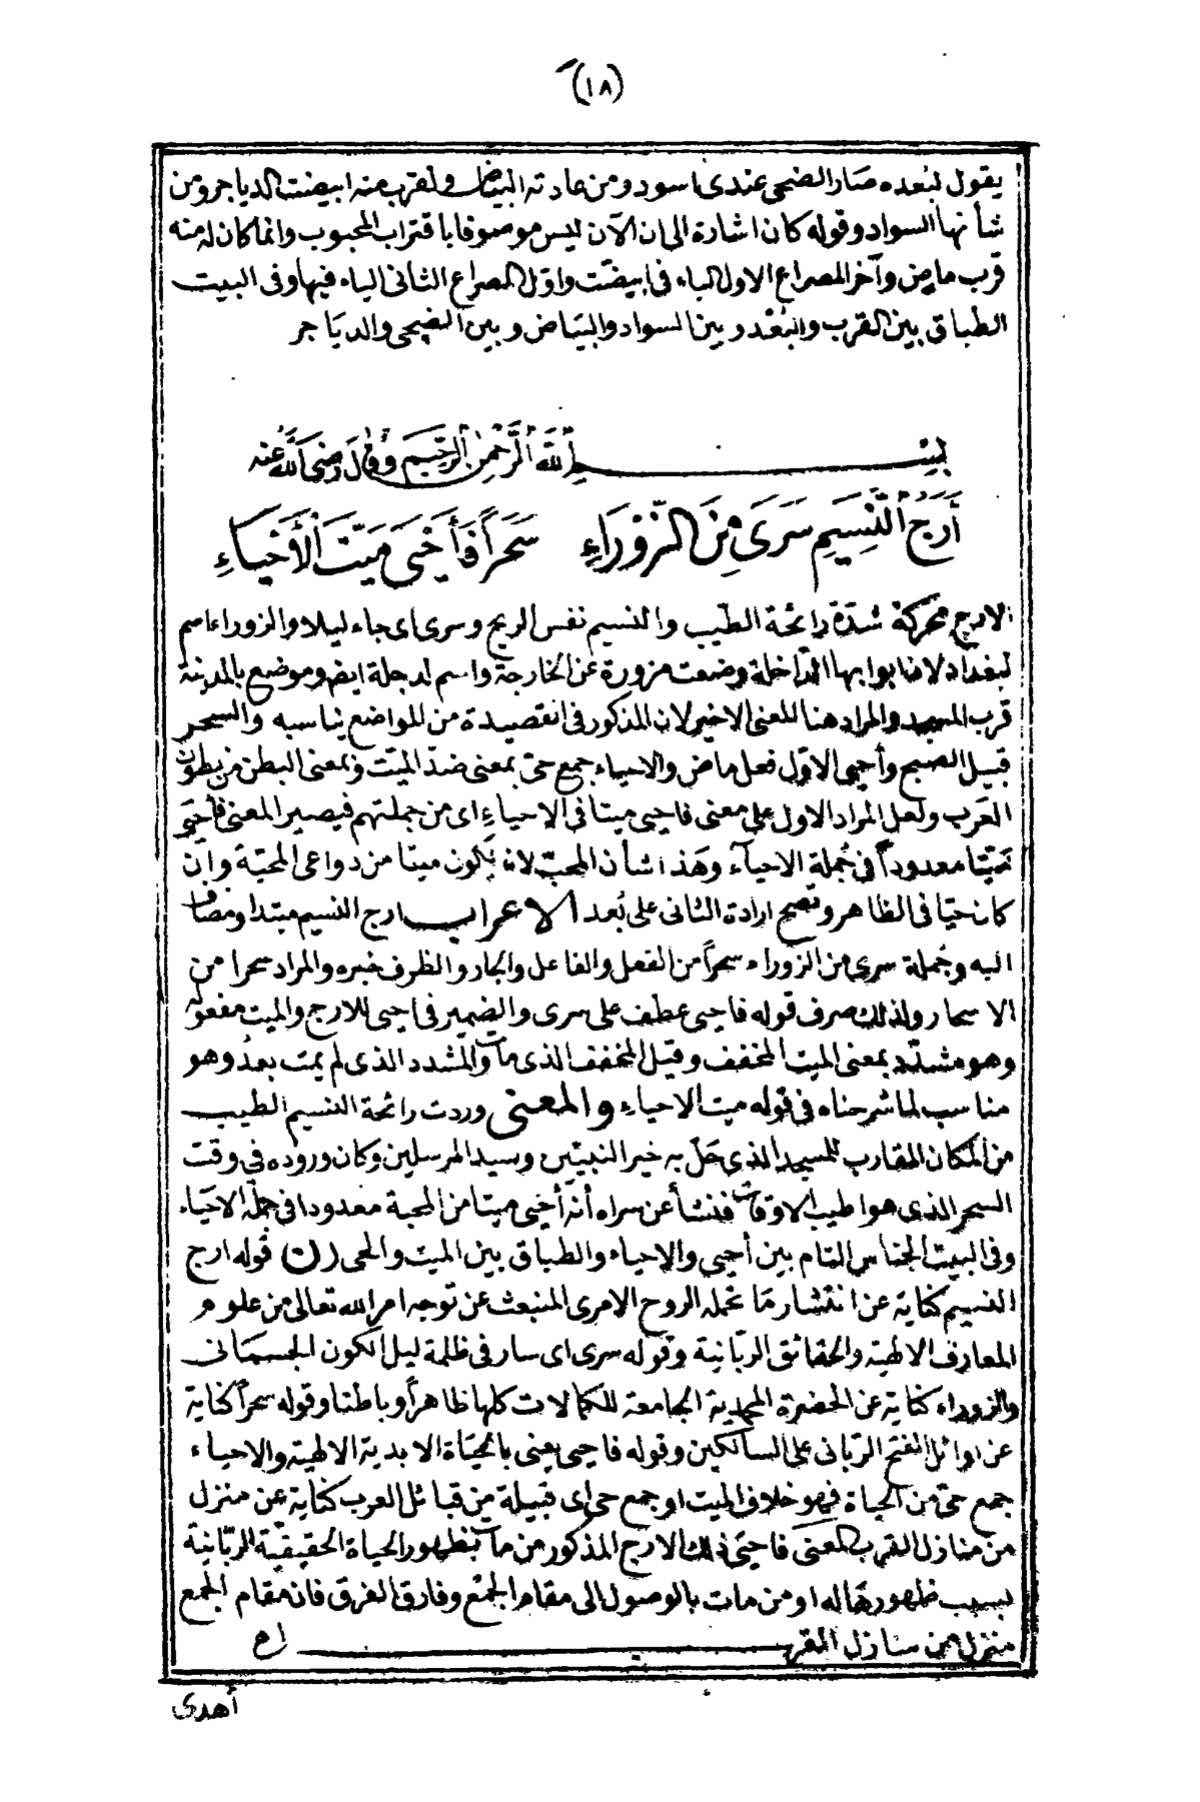 (١٨)
يقول لبعده صار الضحى عندى اسود ومن عادته البياض ولقربه منه ابيضت الدياجر ومن
شأنها السواد وقوله كان اشارة الى ان الآن ليس موصوفا باقتراب المحبوب وانما كان له منه
قرب ماض وآخر المصراع الاول الباء فى ابيضت واول المصراع الثانى الياء فيها وفى البيت
الطباق بين القرب والبُعْد وبين السواد والبياض وبين الضحى والدياجر
بِسْمِ اللَّهِ الرَّحْمنِ الرَّحِيمِ وَقَالَ رَضِىَ اللَّهُ عنه
أَرَجُ النَّسِيمِ سَرَى مِنَ الزَّوْرَاءِ سَحَراً فَأَحْيَى مَيِّتَ الأَحْيَاءِ
الارج محركة شدّة رائحة الطيب والنسيم نفس الريح وسرى اى جاء ليلا والزوراء اسم
لبغداد لان ابوابها الداخلة وضعت مزورة عن الخارجة واسم لدجلة ايض وموضع بالمدينة
قرب المسجد والمراد هنا المعنى الاخير لان المذكور فى القصيدة من المواضع يناسبه والسحر
قبيل الصبح وأحيى الاوّل فعل ماض والاحياء جمع حىّ بمعنى ضدّ الميّت وبمعنى البطن من بطون
العَرَب ولعل المراد الاول على معنى فاحيى ميتا فى الاحياءِ اى من جملتهم فيصير المعنى فأحيَى
مَيّتا معدوداً فى جُملة الاحياء وهذا شأن المحبّ لانه يكون ميتا من دواعى المحبّة وان
كان حيّا فى الظاهر وتصح ارادة الثانى على بُعد الاعراب ارج النسيم مبتدا ومضاف
اليه وجُملة سرى من الزوراء سحراً من الفعل والفاعل والجار والظرف خبره والمراد سحرا من
الاسحار ولذلك صرف قوله فاحيى عطف على سرى والضمير فى احيى للارج والميت مفعوله
وهو مشدّد بمعنى الميت المخفف وقيل المخفف الذى مات والمشدد الذى لم يمت بعدُ وهو
مناسب لما شرحناه فى قوله ميت الاحياء والمعنى وردت رائحة النسيم الطيب
من المكان المقارب للمسجد الذى حَلّ به خير النبيّين وسيد المرسلين وكان وروده فى وقت
السحر الذى هو اطيب الاوقات فنشأ عن سراه أنّه أحْيَى ميتا من المحبة معدودا فى جملة الاحياء
وفى البيت الجناس التام بين أحيى والاحياء والطباق بين الميت والحى (ن) قوله ارج
النسيم كناية عن انتشار ما تحمله الروح الامرى المنبعث عن توجه امر الله تعالى من علوم
المعارف الالهية والحقائق الربّانية وقوله سرى اى سار فى ظلمة ليل الكون الجسمانى
والزوراء كناية عن الحضرة المحمدية الجامعة للكمالات كلها ظاهراً وباطنا وقوله سحراً كناية
عن اوائل الفتح الربانى على السالكين وقوله فاحيى يعنى بالحيَاة الابدية الالهية والاحياء
جمع حىّ من الحياة فهو خلاف الميت او جمع حى اى قبيلة من قبائل العرب كناية عن منزل
من منازل القرب المعنى فاحيَى ذلك الارج المذكور من مات بظهور الحياة الحقيقيّة الربّانية
بسبب ظهورها له او من مات بالوصول الى مقام الجمْع وفارق الفرق فان مقام الجمع
منزل من منازل القرب اه
أهدى